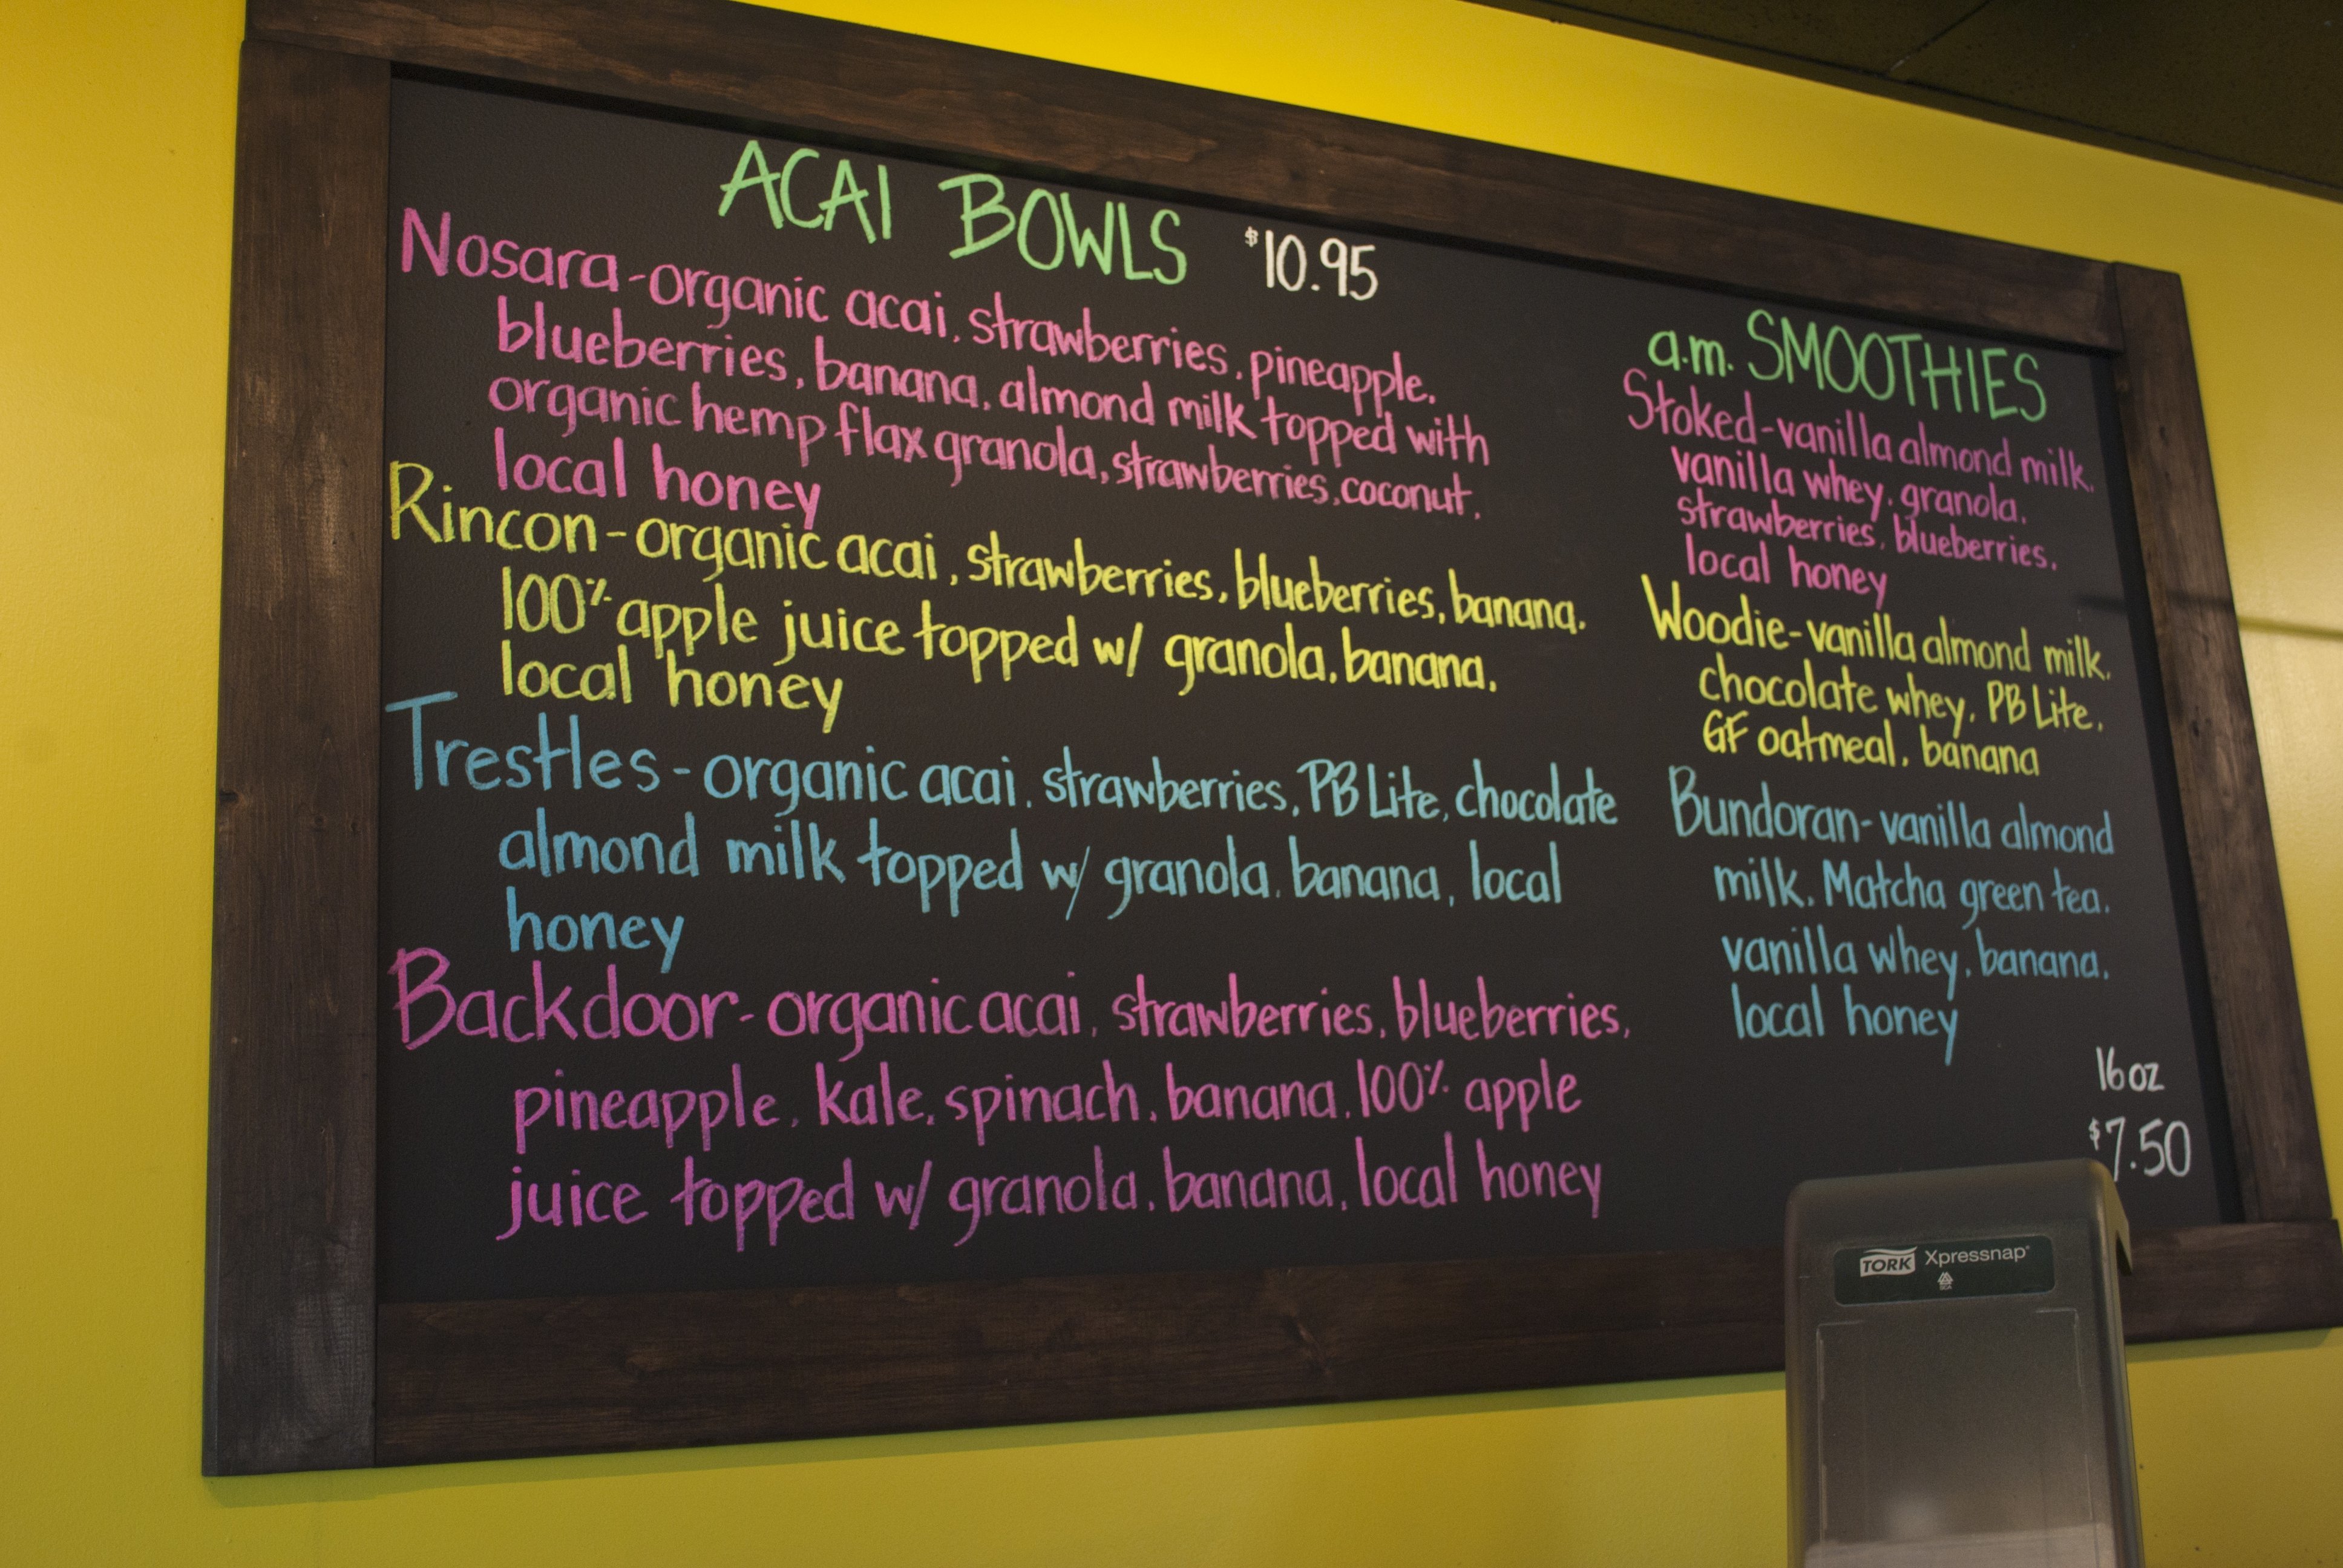 ACAI BOWLS $10.95
Nosara-organic acai, strawberries, pineapple,
blueberries, banana, almond milk topped with
organic hemp flax granola, strawberries, coconut,
local honey
Rincon-organic acai, strawberries, blueberries, banana,
100% apple juice topped w/ granola, banana,
local honey
Trestles-organic acai, strawberries, PB Lite, chocolate
almond milk topped w/ granola, banana, local
honey
Backdoor-organic acai, strawberries, blueberries,
pineapple, kale, spinach, banana, 100% apple
juice topped w/ granola, banana, local honey
a.m. SMOOTHIES
Stoked-vanilla almond milk,
vanilla whey, granola,
strawberries, blueberries,
local honey
Woodie-vanilla almond milk,
chocolate whey, PB Lite,
GF oatmeal, banana
Bundoran-vanilla almond
milk, Matcha green tea,
vanilla whey, banana,
local honey
16 oz
$7.50
TORK Xpressnap®